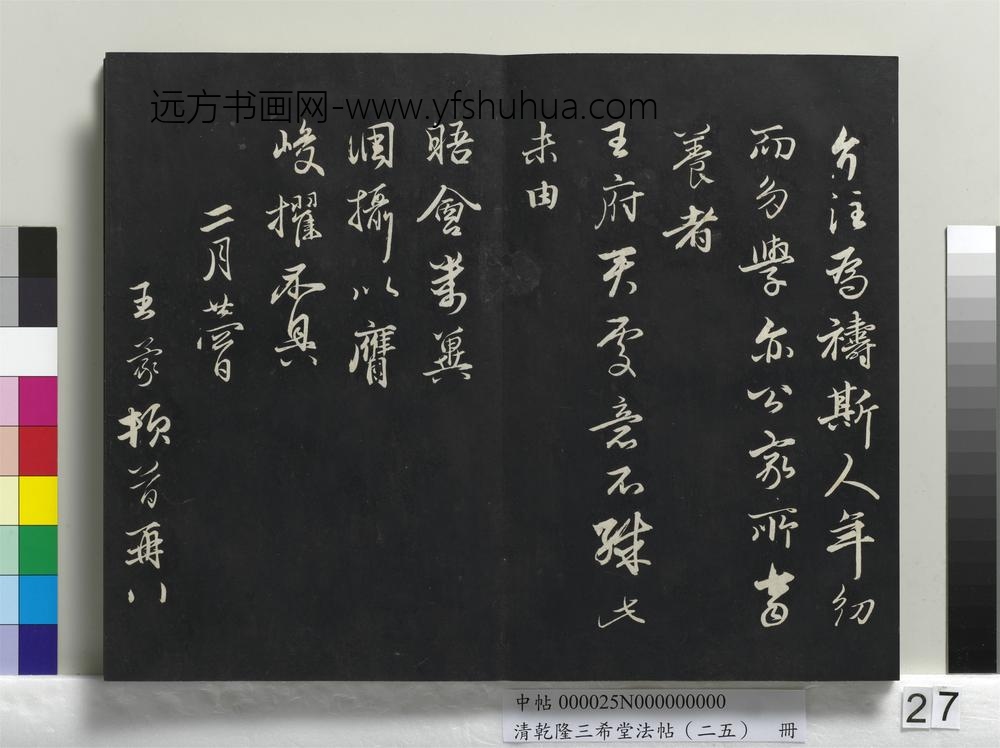 远方书画网-www.yfshuhua.com
分注爲禱斯人年幼
而勿學亦公家所當
養者
王府天雯意不殊此
未由
晤會万冀
調攝以膺
峻擢不具
二月廿四日
王蒙頓首再八
中帖 000025N000000000
清乾隆三希堂法帖（二五） 冊
27